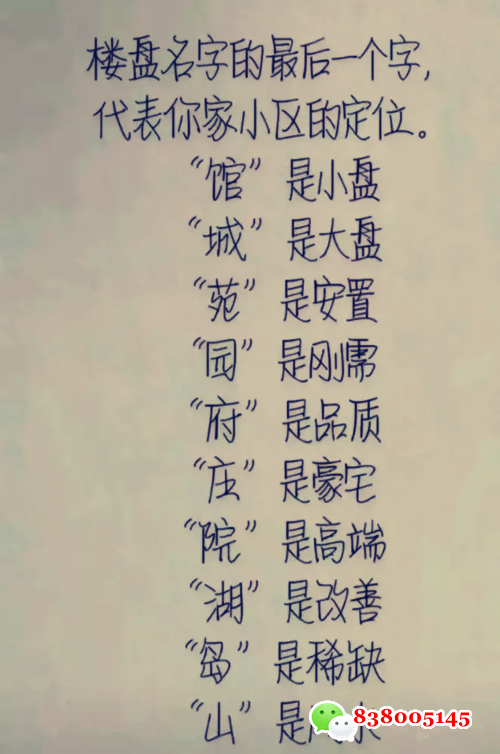 楼盘名字的最后一个字,
代表你家小区的定位。
“馆”是小盘
“城”是大盘
“苑”是安置
“园”是刚需
“府”是品质
“庄”是豪宅
“院”是高端
“湖”是改善
“岛”是稀缺
“山”是
838005145